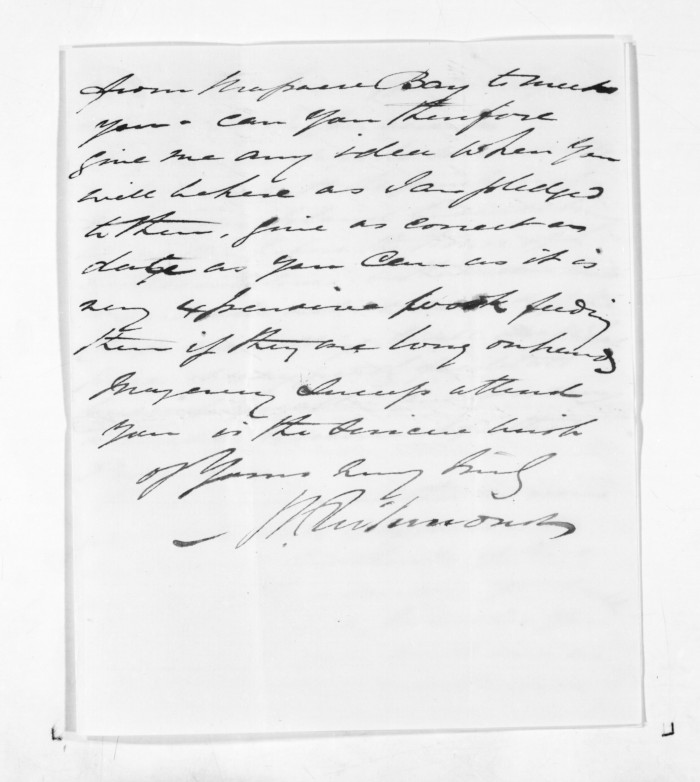 from Massacre Bay to meet
you. can you therefore
give me any idea when you
will be here as I am pledged
to them, give as correct as
date as you can as it is
very expensive work feeding
them if they are long on hands
May every success attend
you is the sincere wish
of Yours very truly
Richmond